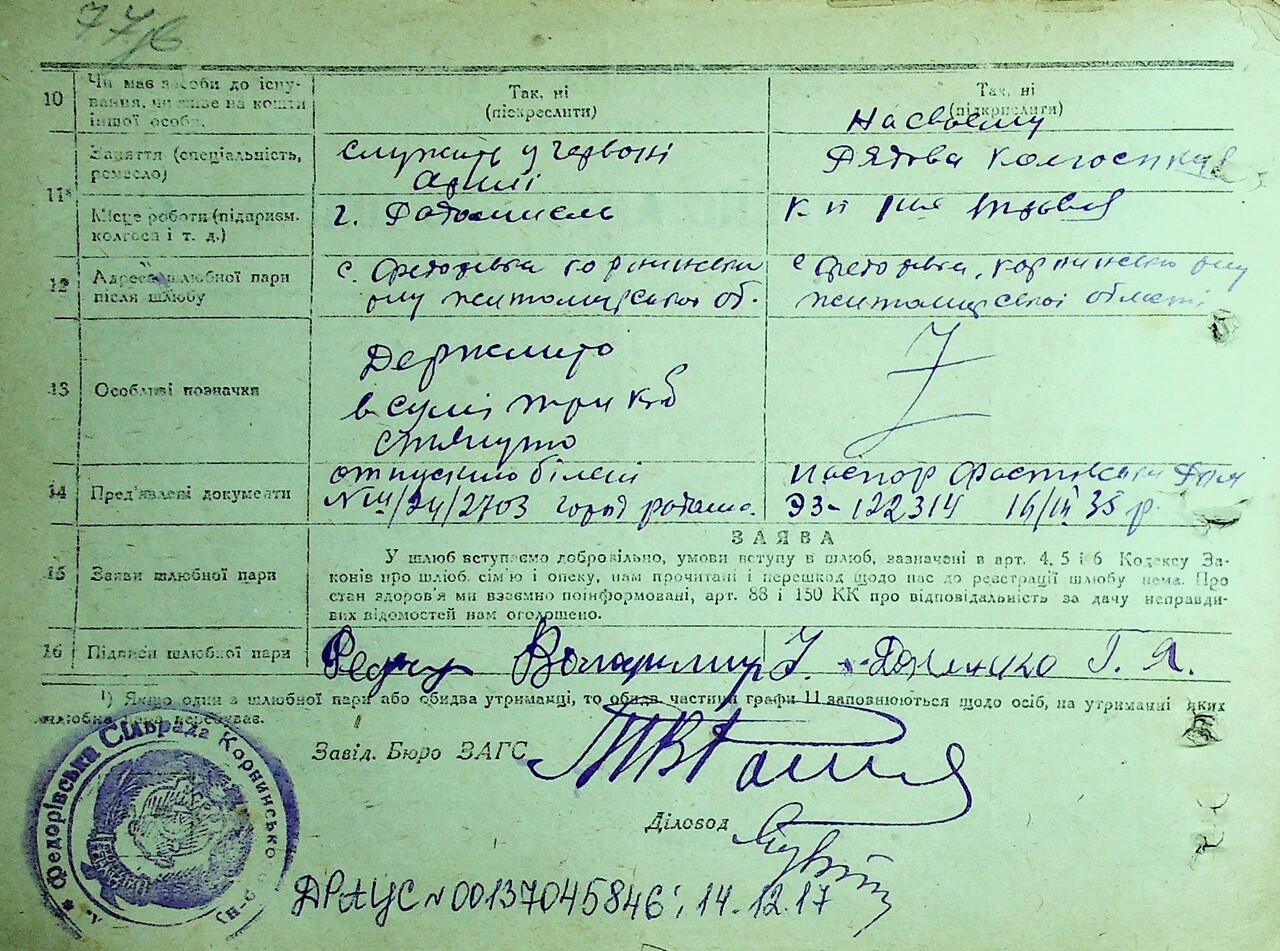 77/6
10 Чи має засоби до існу-
вання, чи живе на кошти
іншої особи.
Так, ні
(підкреслити)
Так, ні
(підкреслити)
На своєму
11¹ Заняття (спеціальність,
ремесло)
служить у червоні
армії
Рядова колгоспниця
Місце роботи (підприєм.
колгосп і т. д.)
г.
12 Адреса шлюбної пари
після шлюбу
с. Федорівка корнинський
р-ну житомирської об.
с Федорівка, корнинсько р-ну
житомирської області
13 Особливі позначки
Держмито
в сумі три крб
стягнуто
14 Пред'явлені документи
отпускно білет
№ III/24/2703 город
паспор Фастівський
ЭЗ-122314 16/IV 38 р.
ЗАЯВА
15 Заяви шлюбної пари
У шлюб вступаємо добровільно, умови вступу в шлюб, зазначені в арт. 4, 5 і 6 Кодексу За-
конів про шлюб, сім'ю і опеку, нам прочитані і перешкод щодо нас до реєстрації шлюбу нема. Про
стан здоров'я ми взаємно поінформовані, арт. 88 і 150 КК про відповідальність за дачу неправди-
вих відомостей нам оголошено.
16 Підписи шлюбної пари
Володимир Г. Я.
¹) Якщо один з шлюбної пари або обидва утриманці, то обидв частини графи 11 заповнюються щодо осіб, на утриманні яких
шлюбна пара перебуває.
Завід. Бюро ЗАГС
Діловод
Федорівська Сільрада Корнинсько
ДРАЦС № 00137045846; 14.12.17